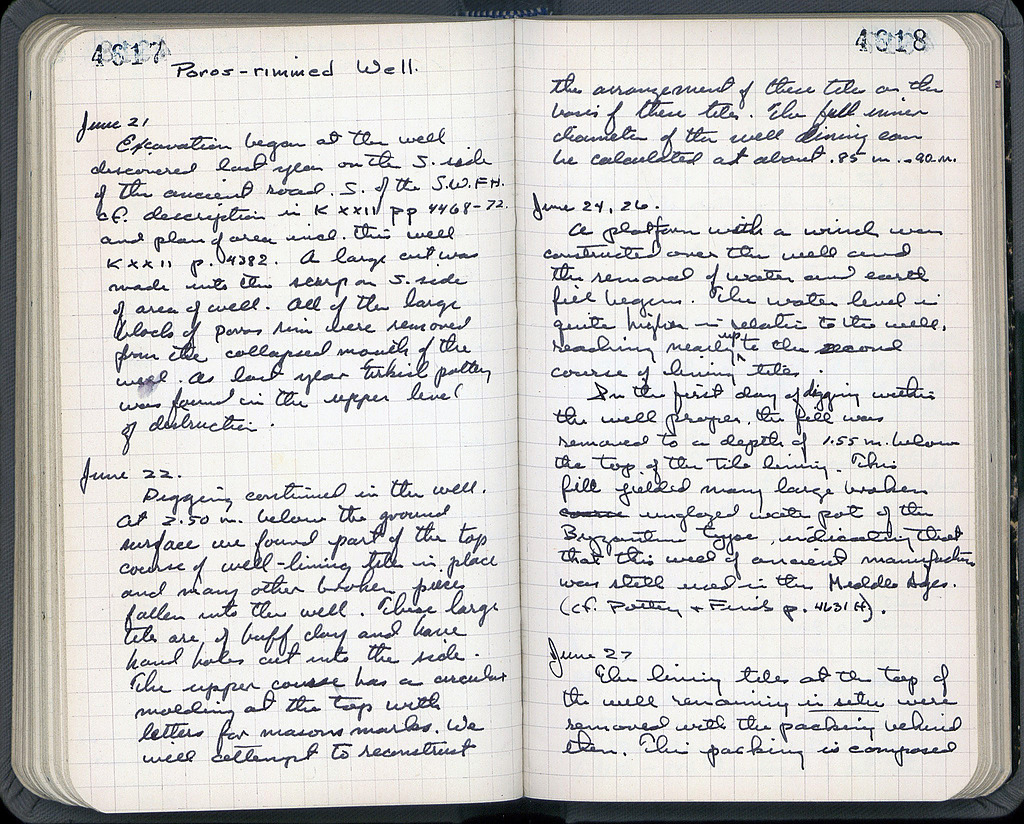 4617
Poros-rimmed Well.
June 21
Excavation began at the well
discovered last year on the S. side
of the ancient road. S. of the S.W.F.H.
cf. description in K XXII pp 4468-72.
and plan of area incl. this well
K XX II p. 4382. A large cut was
made into the scarp on S. side
of area of well. All of the large
blocks of poros rim were removed
from the collapsed mouth of the
well. As last year Turkish pottery
was found in the upper level
of destruction.
June 22.
Digging continued in the well.
At 2.50 m. below the ground
surface we found part of the top
course of well-lining tiles in place
and many other broken pieces
fallen into the well. These large
tiles are of buff clay and have
hand holes cut into the side.
The upper course has a circular
molding at the top with
letters for masons marks. We
will attempt to reconstruct
4618
the arrangement of these tiles on the
basis of these tiles. The full inner
diameter of the well lining can
be calculated at about .85 m. - .90 m.
June 24, 26.
A platform with a winch was
constructed over the well and
the removal of water and earth
fill begun. The water level is
quite higher in relation to the well,
reaching nearly up to the second
course of lining tiles.
In the first day of digging within
the well proper, the fill was
removed to a depth of 1.55 m. below
the top of the tile lining. This
fill yielded many large broken
coarse unglazed water pots of the
Byzantine type, indicating that
that this well of ancient manufacture
was still used in the Middle Ages.
(cf. Pottery + Finds p. 4631 H).
June 27
The lining tiles at the top of
the well remaining in situ were
removed with the packing behind
them. This packing is composed